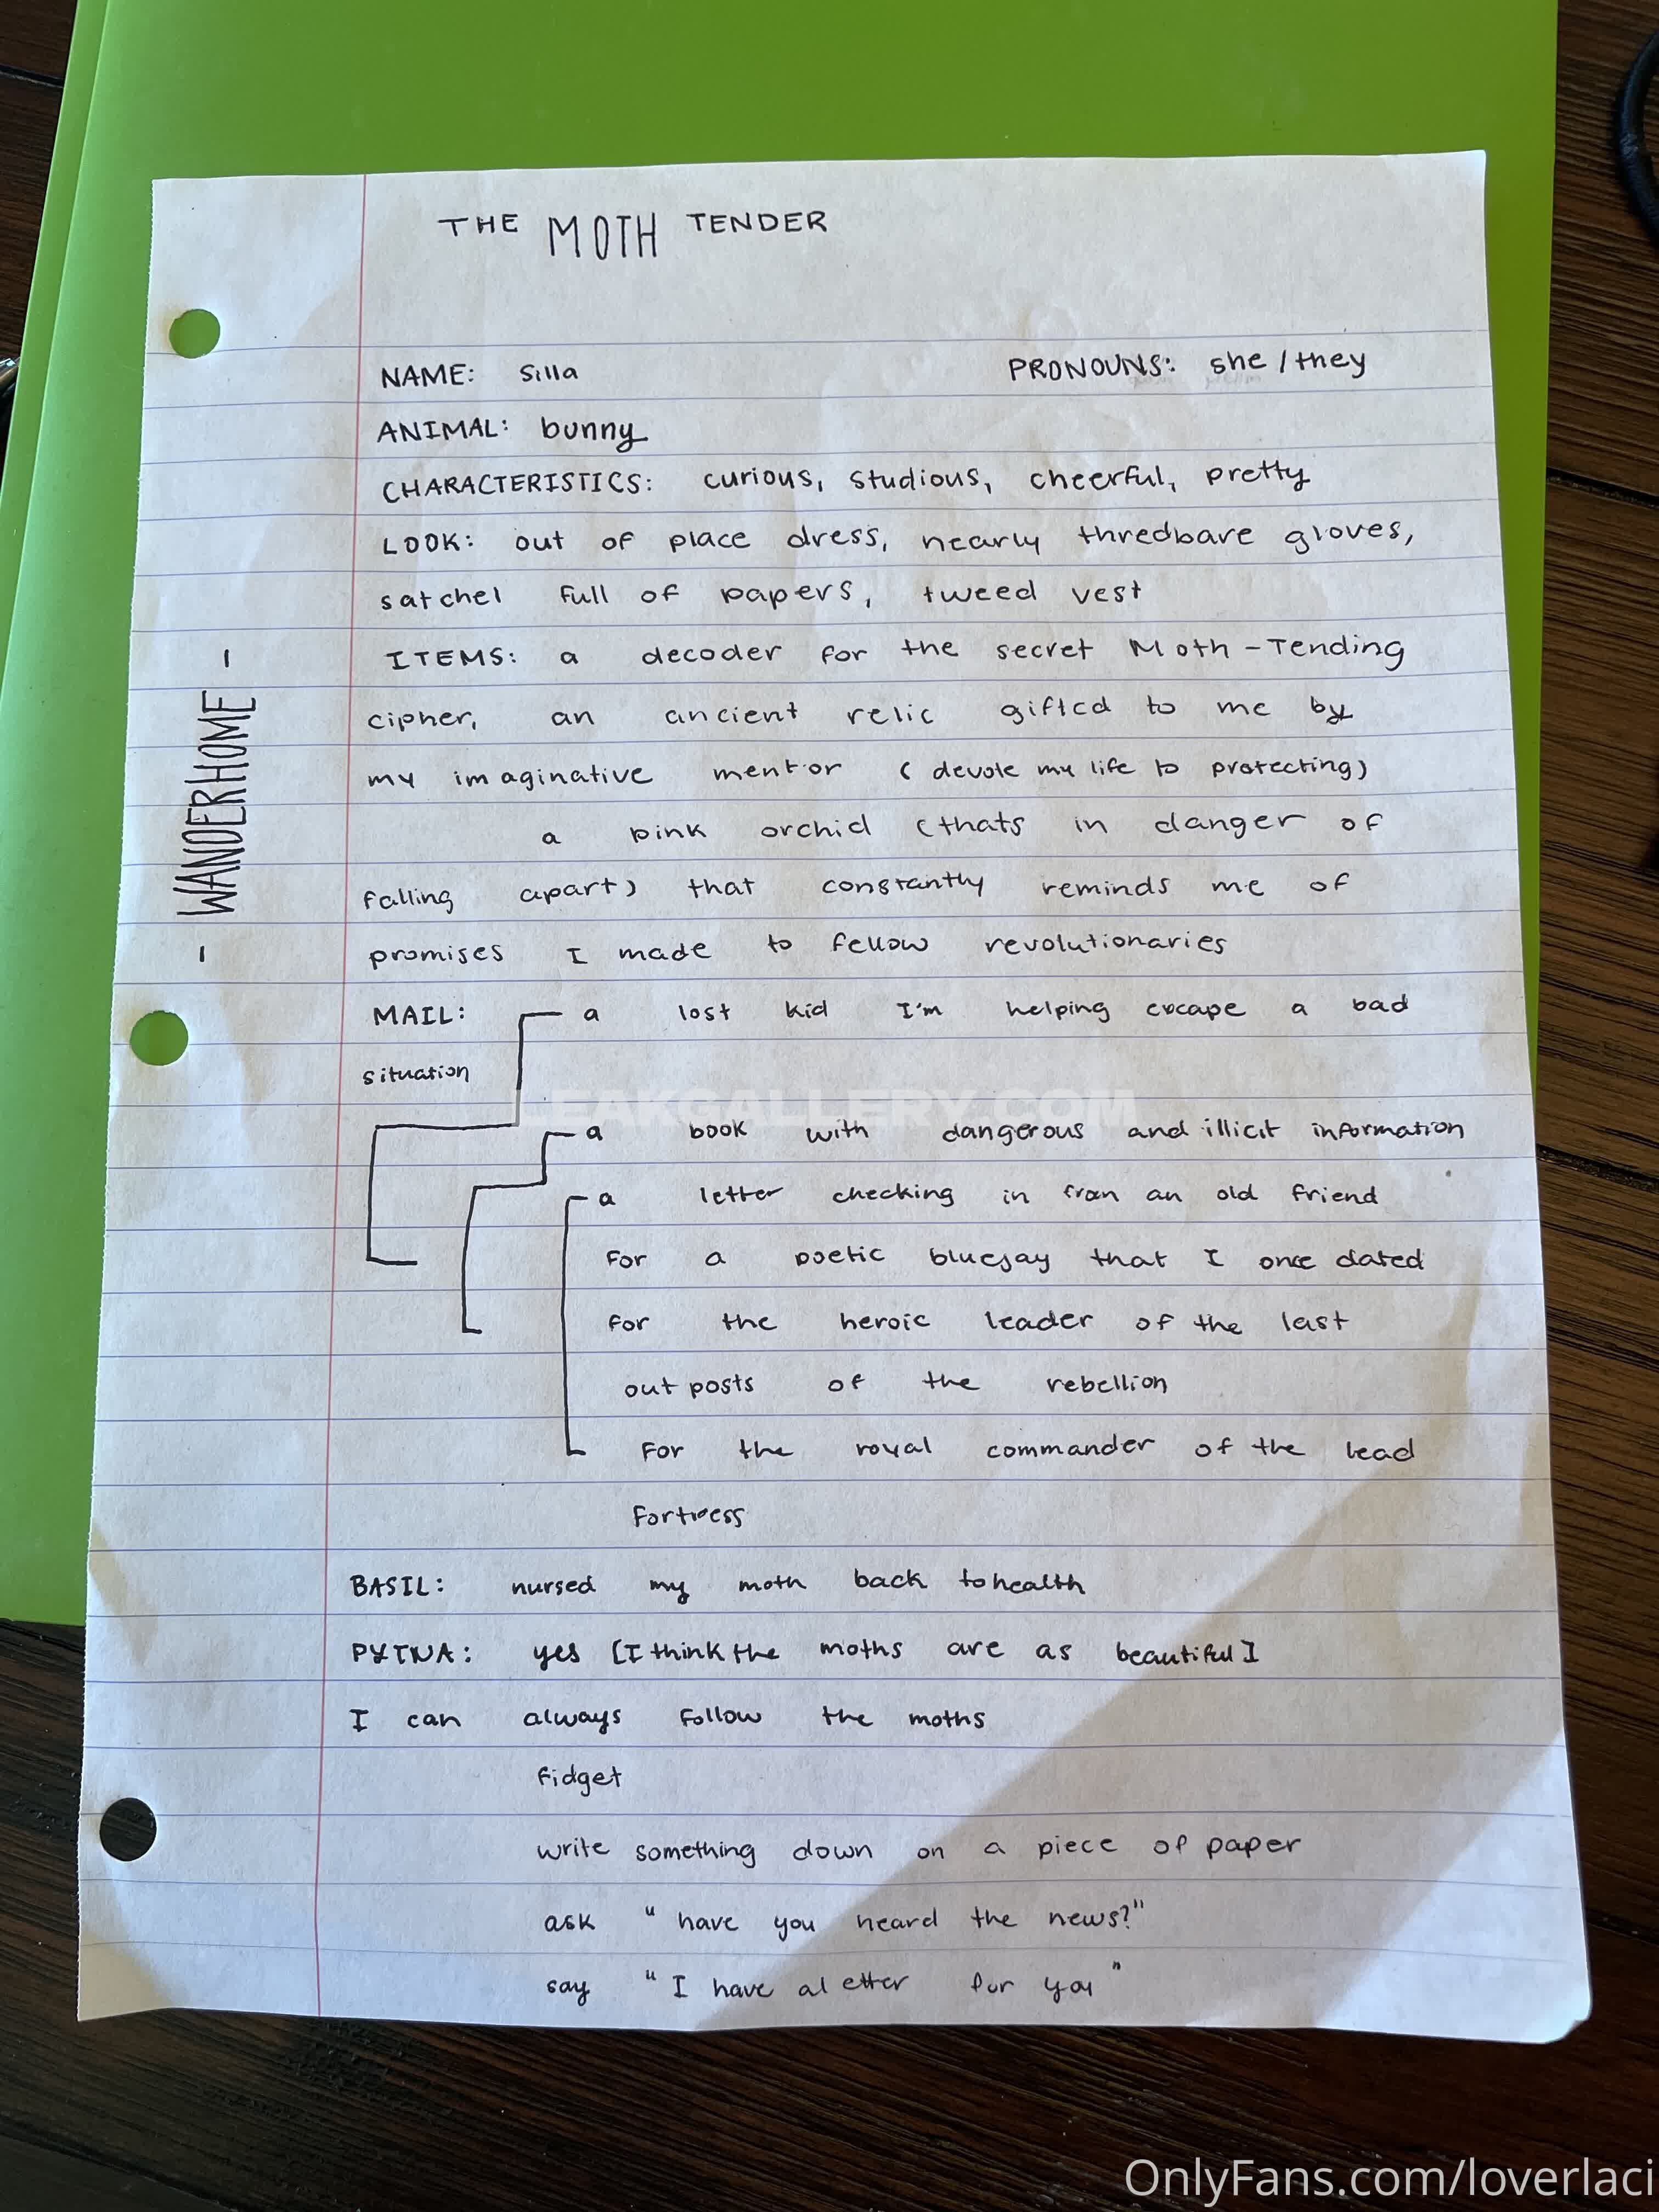 THE MOTH TENDER
NAME: Silla PRONOUNS: she / they
ANIMAL: bunny
CHARACTERISTICS: curious, studious, cheerful, pretty
LOOK: out of place dress, nearly thredbare gloves,
satchel full of papers, tweed vest
ITEMS: a decoder for the secret Moth-Tending
cipher, an ancient relic gifted to me by
my imaginative mentor (devote my life to protecting)
a pink orchid (thats in danger of
falling apart) that constantly reminds me of
promises I made to fellow revolutionaries
- WANDERHOME -
MAIL: a lost kid I'm helping escape a bad
situation
LEAKGALLERY.COM
a book with dangerous and illicit information
a letter checking in from an old friend
for a poetic bluejay that I once dated
for the heroic leader of the last
outposts of the rebellion
for the royal commander of the lead
fortress
BASIL: nursed my moth back to health
yes [I think the moths are as beautiful]
I can always follow the moths
fidget
write something down on a piece of paper
ask "have you heard the news?"
say "I have a letter for you"
OnlyFans.com/loverlaci